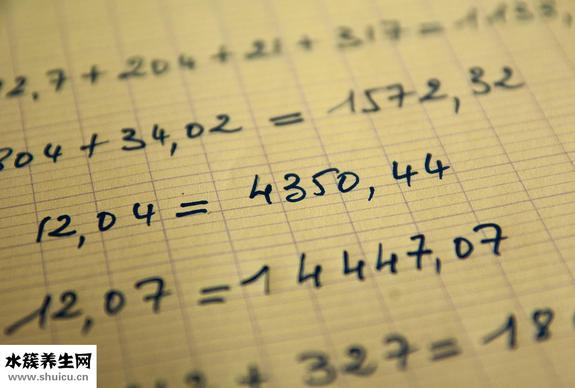 2,7 + 204 + 21 + 317 = 1133,
804 + 34,02 = 1572,32
12,04 = 4350,44
12,07 = 14447,07
+ 327 = 18
水簇养生网
www.shuicu.cn